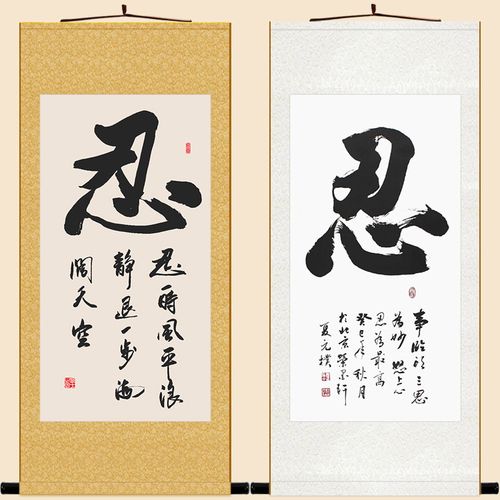 忍
忍一時風平浪
靜退一步海
闊天空
忍
事临头三思
為妙 怒上心
忍為最高
癸巳年秋月
於北京
夏元樸